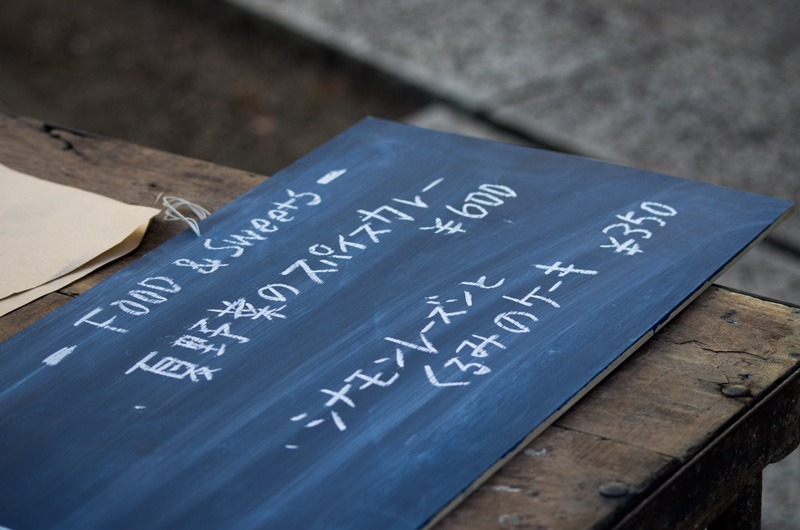 - FOOD & Sweets -
・夏野菜のスパイスカレー
¥600
・シナモンレーズンと
くるみのケーキ
¥350